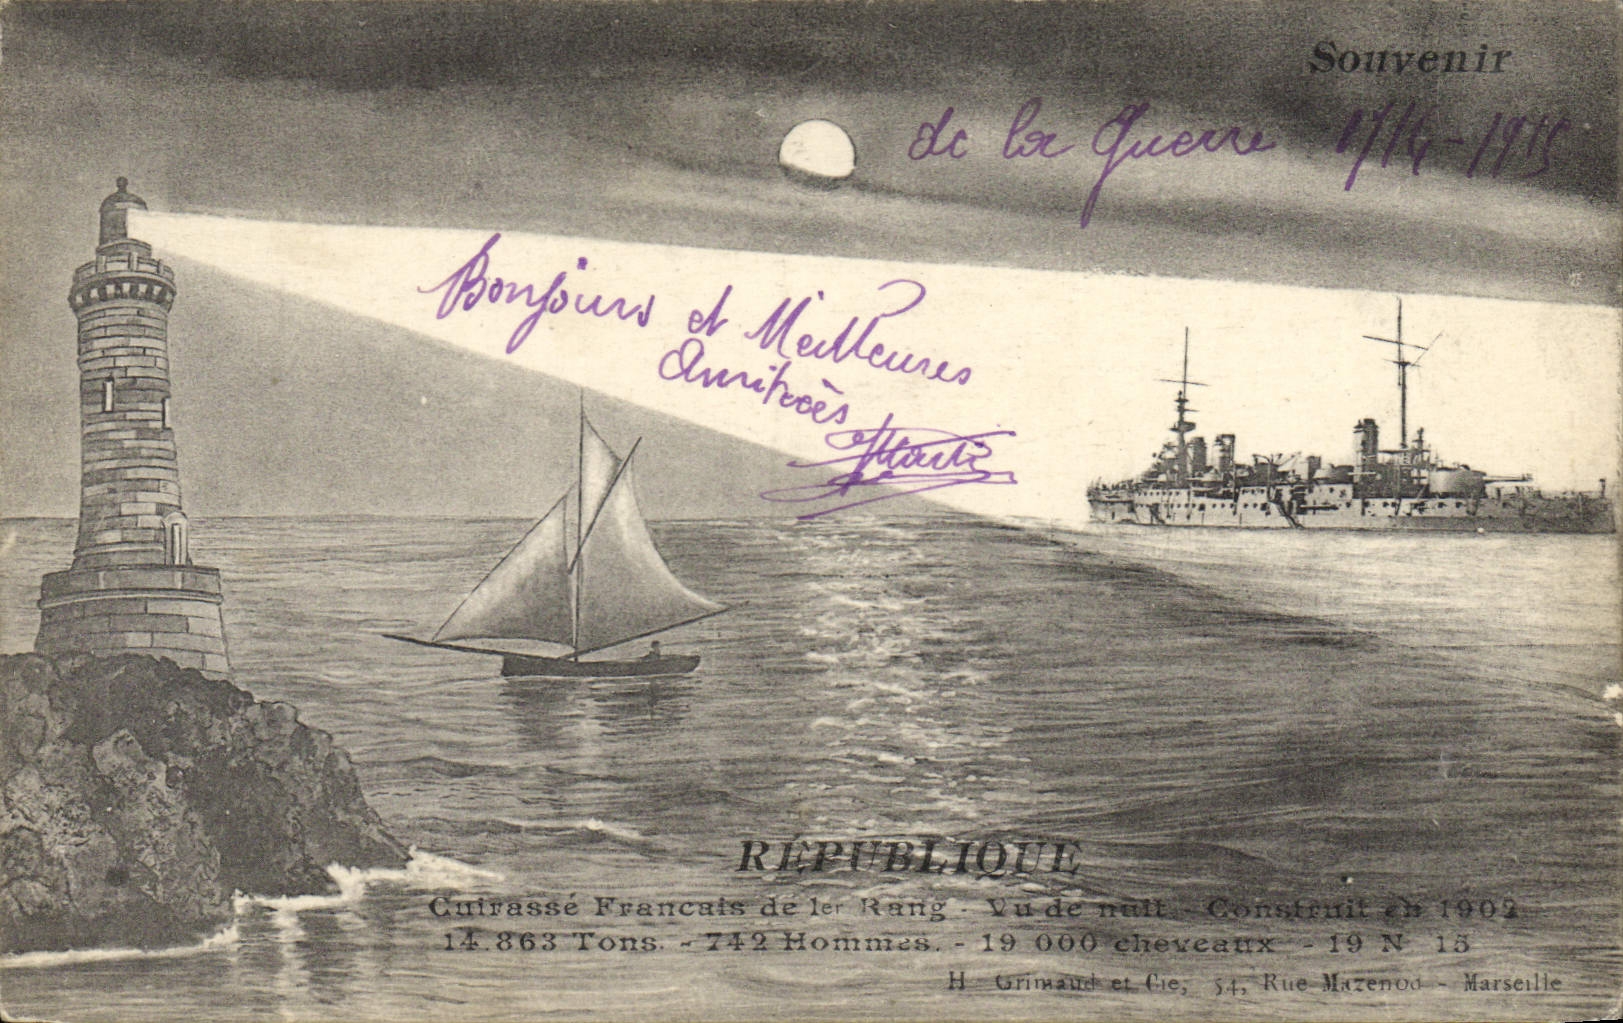 Souvenir
de la Guerre 1914-1915
Bonjours et Meilleures
Amitiées
RÉPUBLIQUE
Cuirassé Francais de 1er Rang - Vu de nuit - Construit en 1902
14.863 Tons. - 742 Hommes. - 19 000 cheveaux - 19 N 15
H Grimaud et Cie, 54, Rue Mazenod - Marseille